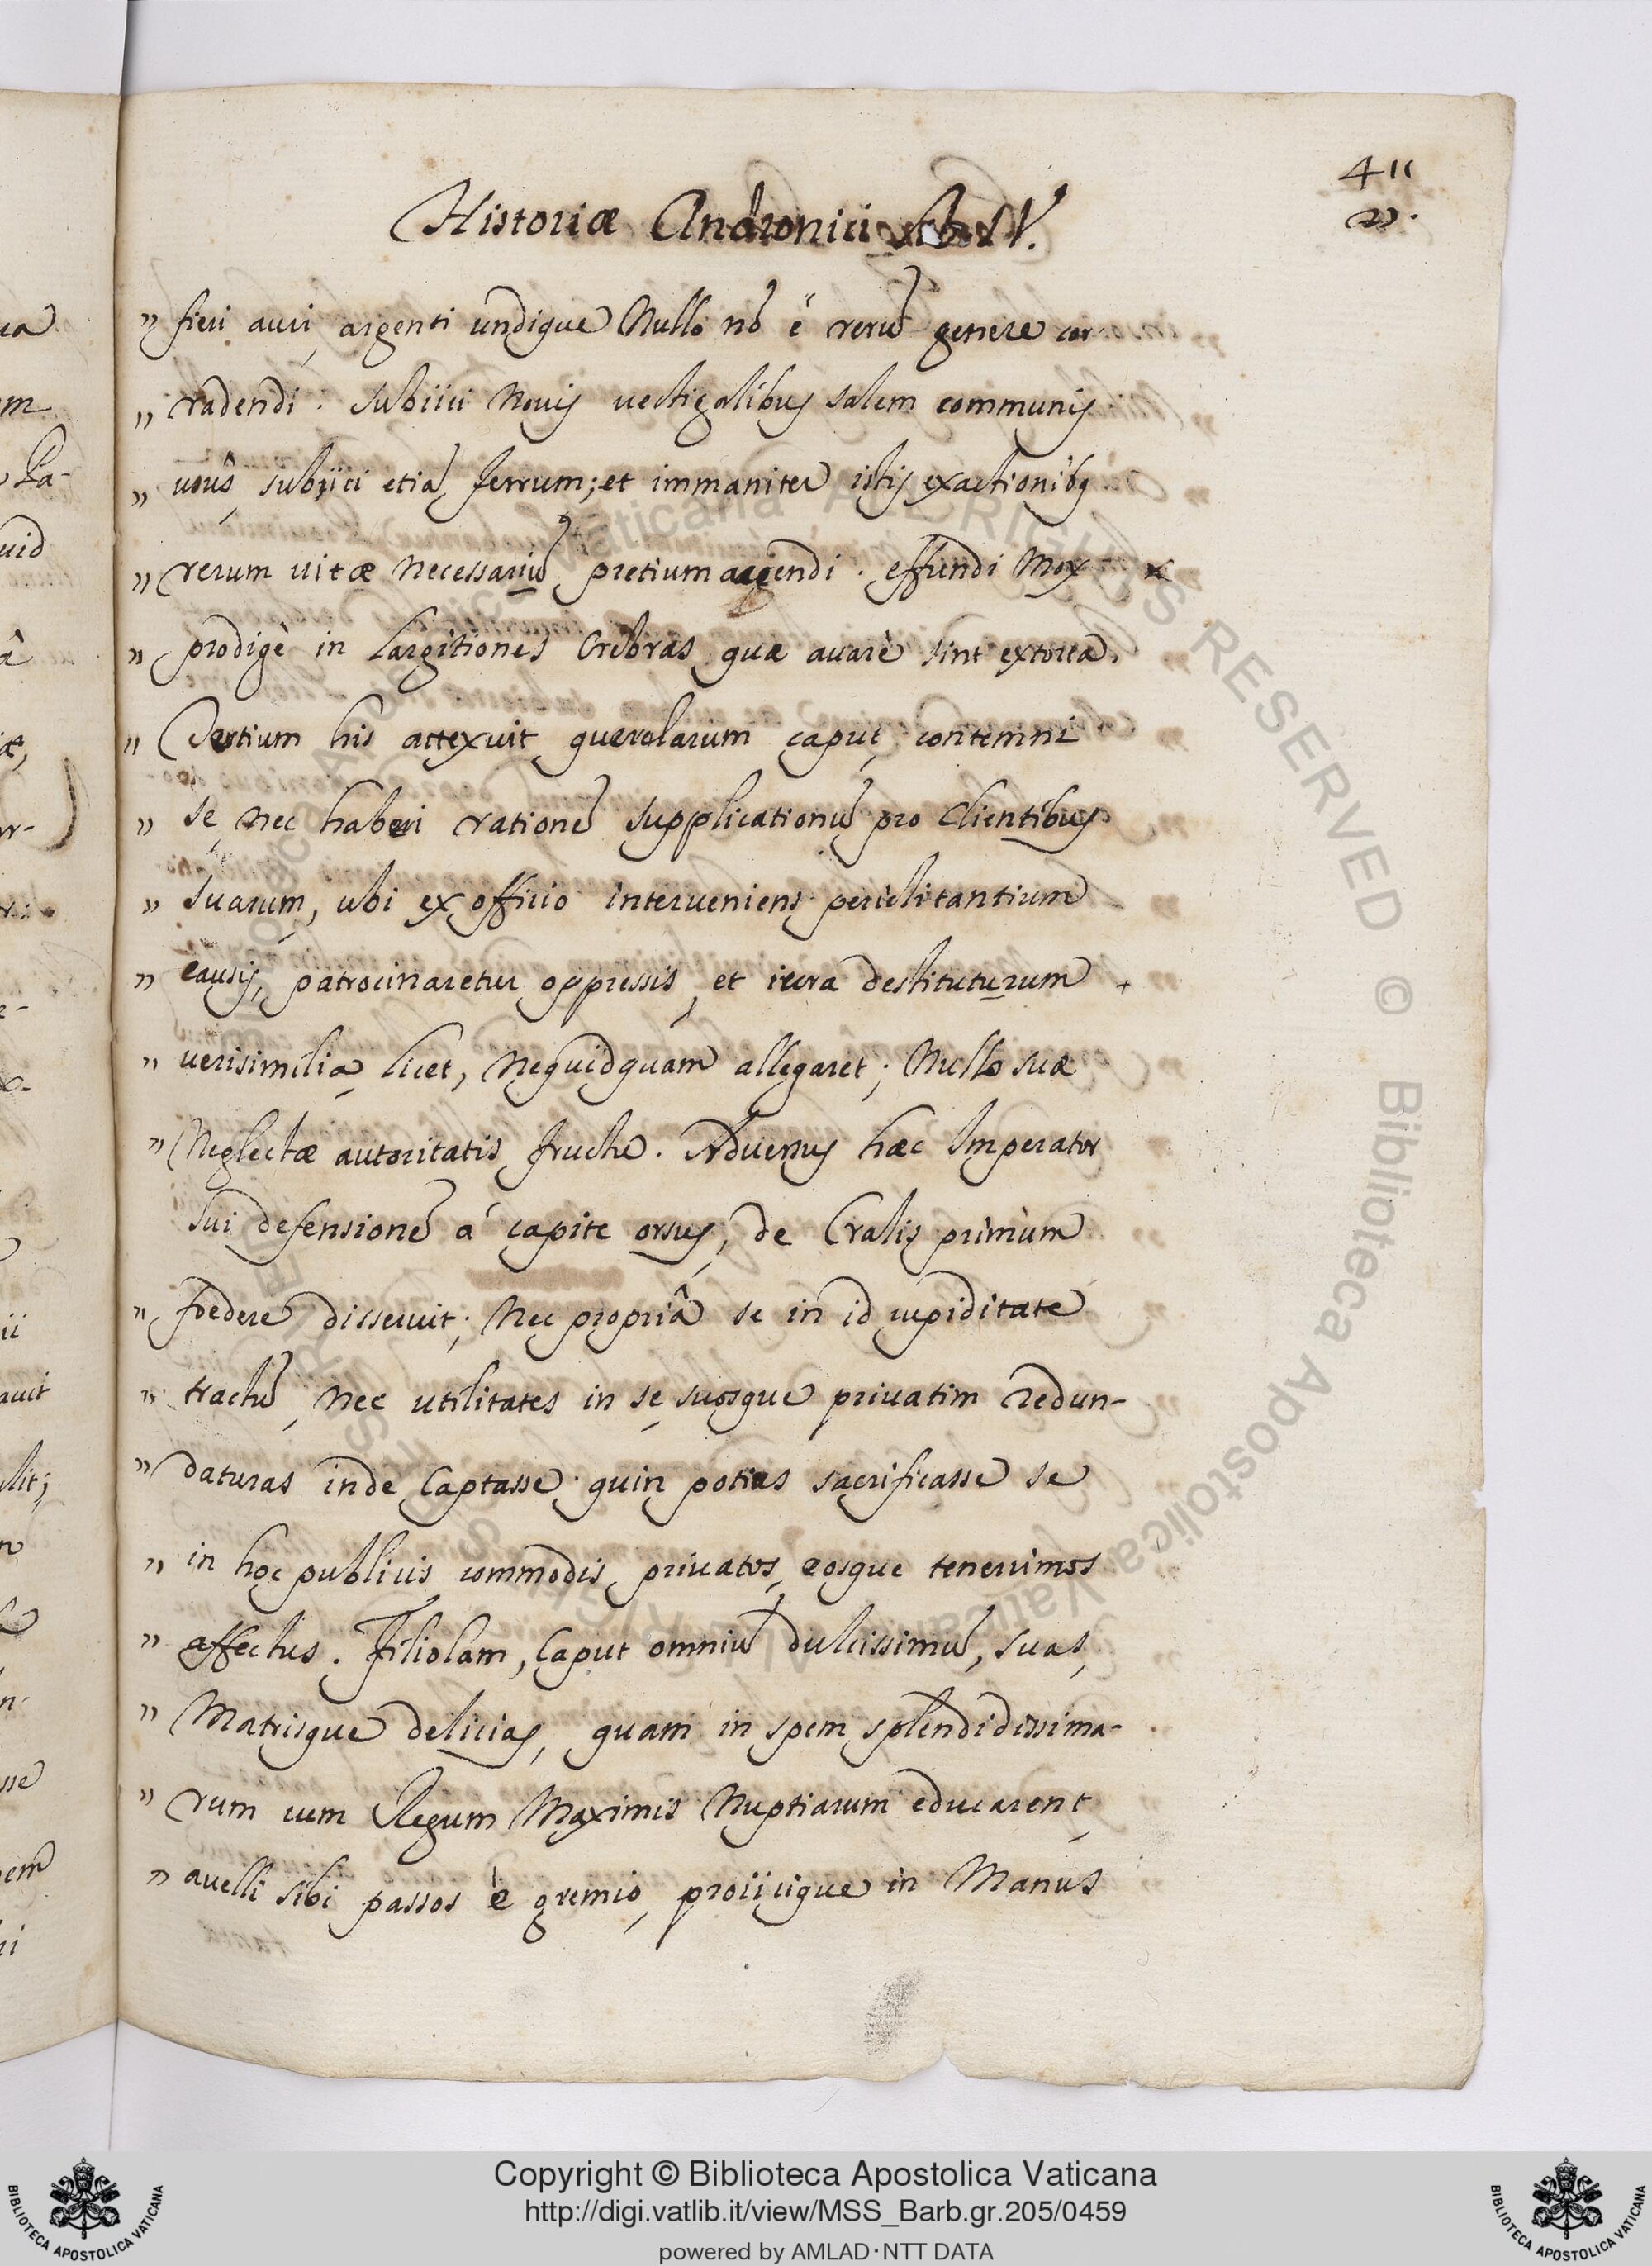 411
22.
Historiæ Andronici Lib. IV.
" fieri auri, argenti undique Nullo nō è rerū genere cor
" radendi. subiici Nouis uectigalibus salem communis
" usûs, subiici etiā, ferrum; et immaniter istis exactionibq
" rerum uitæ Necessariū, pretium augendi. effundi Mox x
" prodigè in Largitiones Crebras, quæ auarè sint extorta.
" Tertium his attexuit querelarum caput, contemni
" se, nec haberi rationē supplicationū pro Clientibus
" suarum, ubi ex officio interueniens periclitantium
" causis, patrocinaretur oppressis, et iura destituturum +
" uerisimilia, licet, Nequidquam allegaret; Nullo suæ
" Neglectæ autoritatis fructu. Aduersus hæc Imperator
sui defensionē à capite orsus, de Cralis primùm
" foedere disseruit; Nec propriâ se in id cupiditate
" tractū, Nec utilitates in se, suosque priuatim redun-
" daturas inde Captasse; quin potius sacrificasse se
" in hoc publicis commodis, priuatos, eosque tenerrimos
" affectus. Filiolam, Caput omniū dulcissimū, suas,
" Matrisque delicias, quam in spem splendidissima-
" rum cum Regum Maximis Nuptiarum educarent,
" auelli sibi passos è gremio, proiicique in Manus
Copyright © Biblioteca Apostolica Vaticana
http://digi.vatlib.it/view/MSS_Barb.gr.205/0459
powered by AMLAD·NTT DATA
BIBLIOTECA APOSTOLICA VATICANA
BIBLIOTECA APOSTOLICA VATICANA